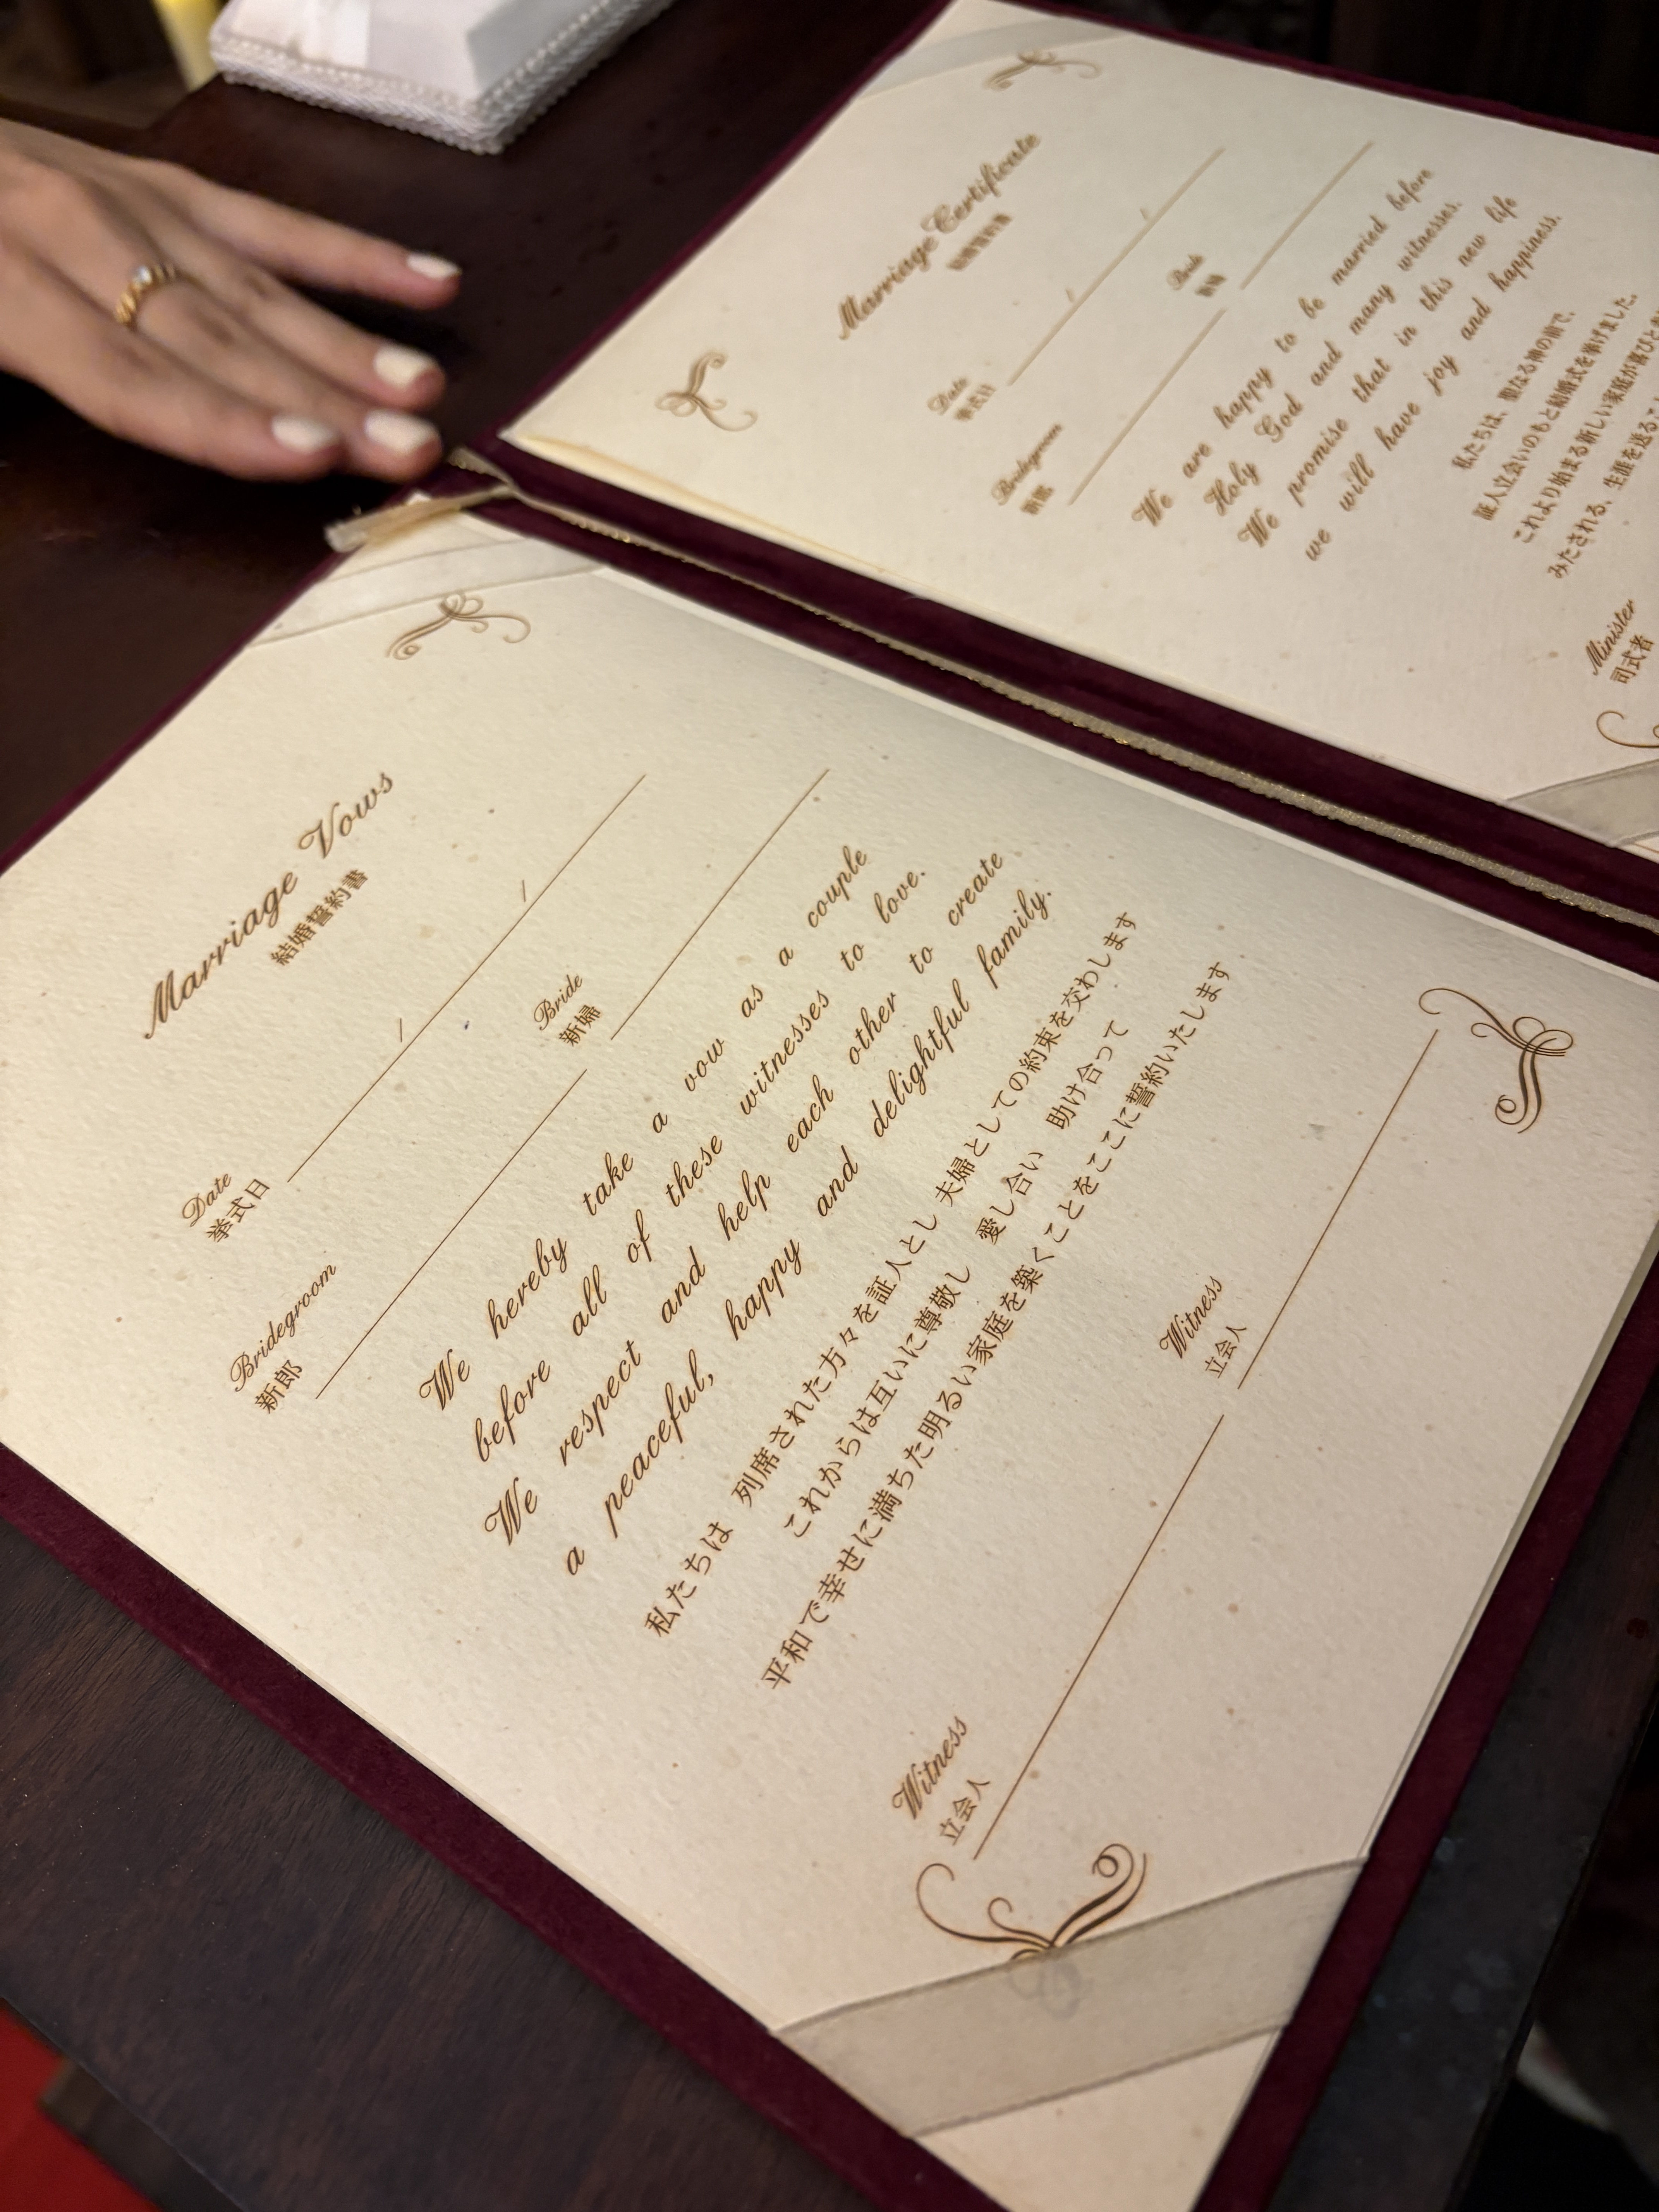 Marriage Vows
結婚誓約書
Date
挙式日
/ /
Bridegroom
新郎
Bride
新婦
We hereby take a vow as a couple
before all of these witnesses to love.
We respect and help each other to create
a peaceful, happy and delightful family.
私たちは 列席された方々を証人とし 夫婦としての約束を交わします
これからは互いに尊敬し 愛し合い 助け合って
平和で幸せに満ちた明るい家庭を築くことをここに誓約いたします
Witness
立会人
Witness
立会人
Marriage Certificate
Date
挙式日
/ /
Bridegroom
新郎
Bride
新婦
We are happy to be married before
Holy God and many witnesses.
We promise that in this new life
we will have joy and happiness.
私たちは、聖なる神の前で、
証人立会いのもと結婚式を挙げました。
これより始まる新しい家庭が喜びと
みたされる、生涯を送る
Minister
司式者